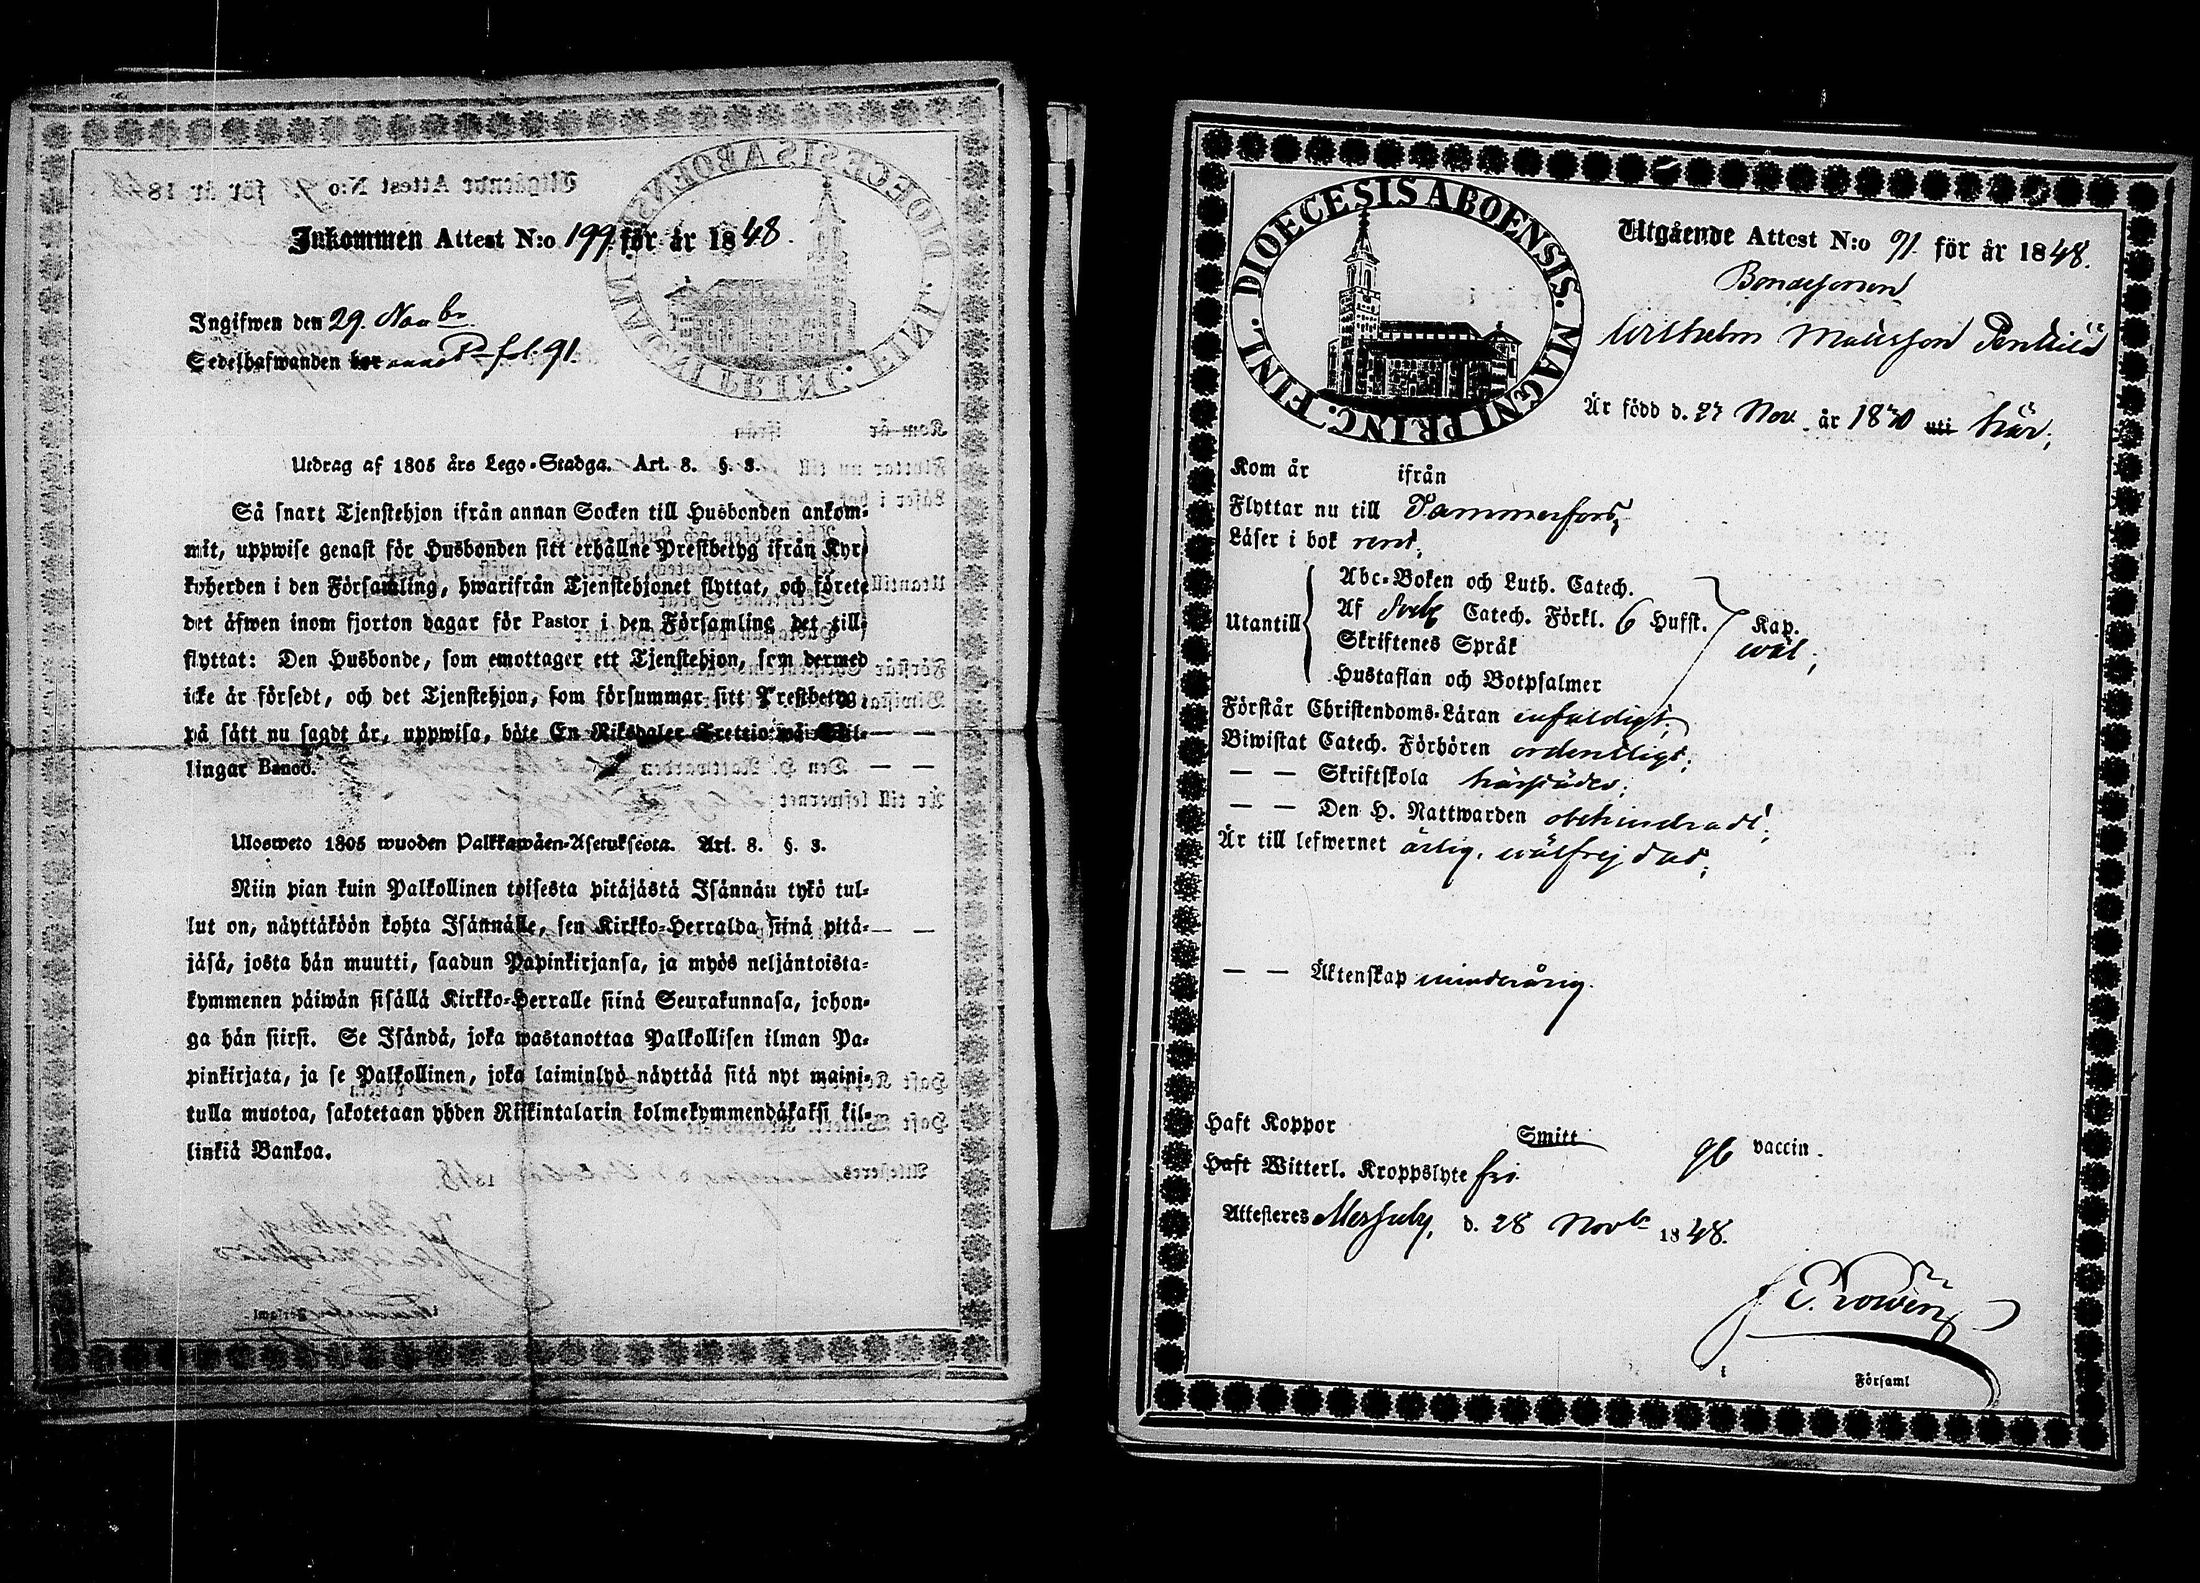 Inkommen Attest N:o 199 för år 1848.
Ingifwen den 29. Novbr
Sedelhafwanden fol. 91.
Utdrag af 1805 års Lego-Stadga. Art. 8. §. 3.
Så snart Tjenstehjon ifrån annan Socken till Husbonden ankom-
mit, uppwise genast för Husbonden sitt erhållne Prestbetyg ifrån Kyr-
koherden i den Församling, hwarifrån Tjenstehjonet flyttat, och förete
det äfwen inom fjorton dagar för Pastor i den Församling det till-
flyttat: Den Husbonde, som emottager ett Tjenstehjon, som dermed
icke är försedt, och det Tjenstehjon, som försummar sitt Prestbetyg
på sätt nu sagdt är, uppwisa, böte En Riksdaler Trettio två Skil-
lingar Banco.
Ulosweto 1805 wuoden Palkkawäen-Asetuksesta. Art. 8. §. 3.
Niin pian kuin Palkollinen toisesta pitäjästä Isännän tykö tul-
lut on, näyttäköön kohta Isännälle, sen Kirkko-Herralda siinä pitä-
jäsä, josta hän muutti, saadun Papinkirjansa, ja myös neljäntoista-
kymmenen päiwän sisällä Kirkko-Herralle siinä Seurakunnasa, johon-
ga hän siirsi. Se Isändä, joka wastanottaa Palkollisen ilman Pa-
pinkirjata, ja se Palkollinen, joka laiminlyö näyttää sitä nyt maini-
tulla muotoa, sakotetaan yhden Riikintalarin kolmekymmendäkaksi kil-
linkiä Bankoa.
DIOECESIS ABOENSIS. MAGNI PRINC. FINL.
Utgående Attest N:o 91. för år 1848.
Bondesonen
Wilhelm Mattsson
Är född d. 27 Nov. år 1830 uti här;
Kom år ifrån
Flyttar nu till Tammerfors;
Läser i bok rent;
Utantill
Abc-Boken och Luth. Catech.
Af Sveb. Catech. Förkl. 6 Hufst. Kap.
Skriftenes Språk wäl;
Hustaflan och Botpsalmer
Förstår Christendoms-Läran enfaldigt;
Biwistat Catech. Förhören ordentligt;
— — Skriftskola härstädes;
— — Den H. Nattwarden obehindradt;
Är till lefwernet ärlig, wälfrejdad;
— — Äktenskap minderårig.
Haft Koppor
Smitt
vaccin.
Haft Witterl. Kroppslyte fri
Attesteres Messuby, d. 28 Novbr 1848.
i Församl